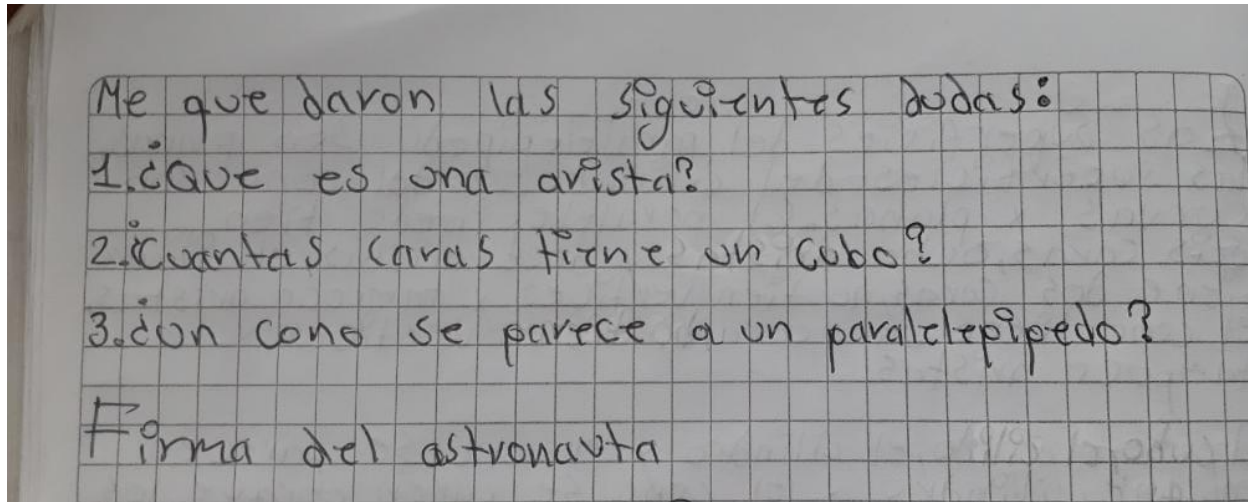 Me que daron las siguientes dudas:
1.¿Que es una arista?
2.¿Cuantas caras tiene un cubo?
3.¿un cono se parece a un paralelepipedo?
Firma del astronauta